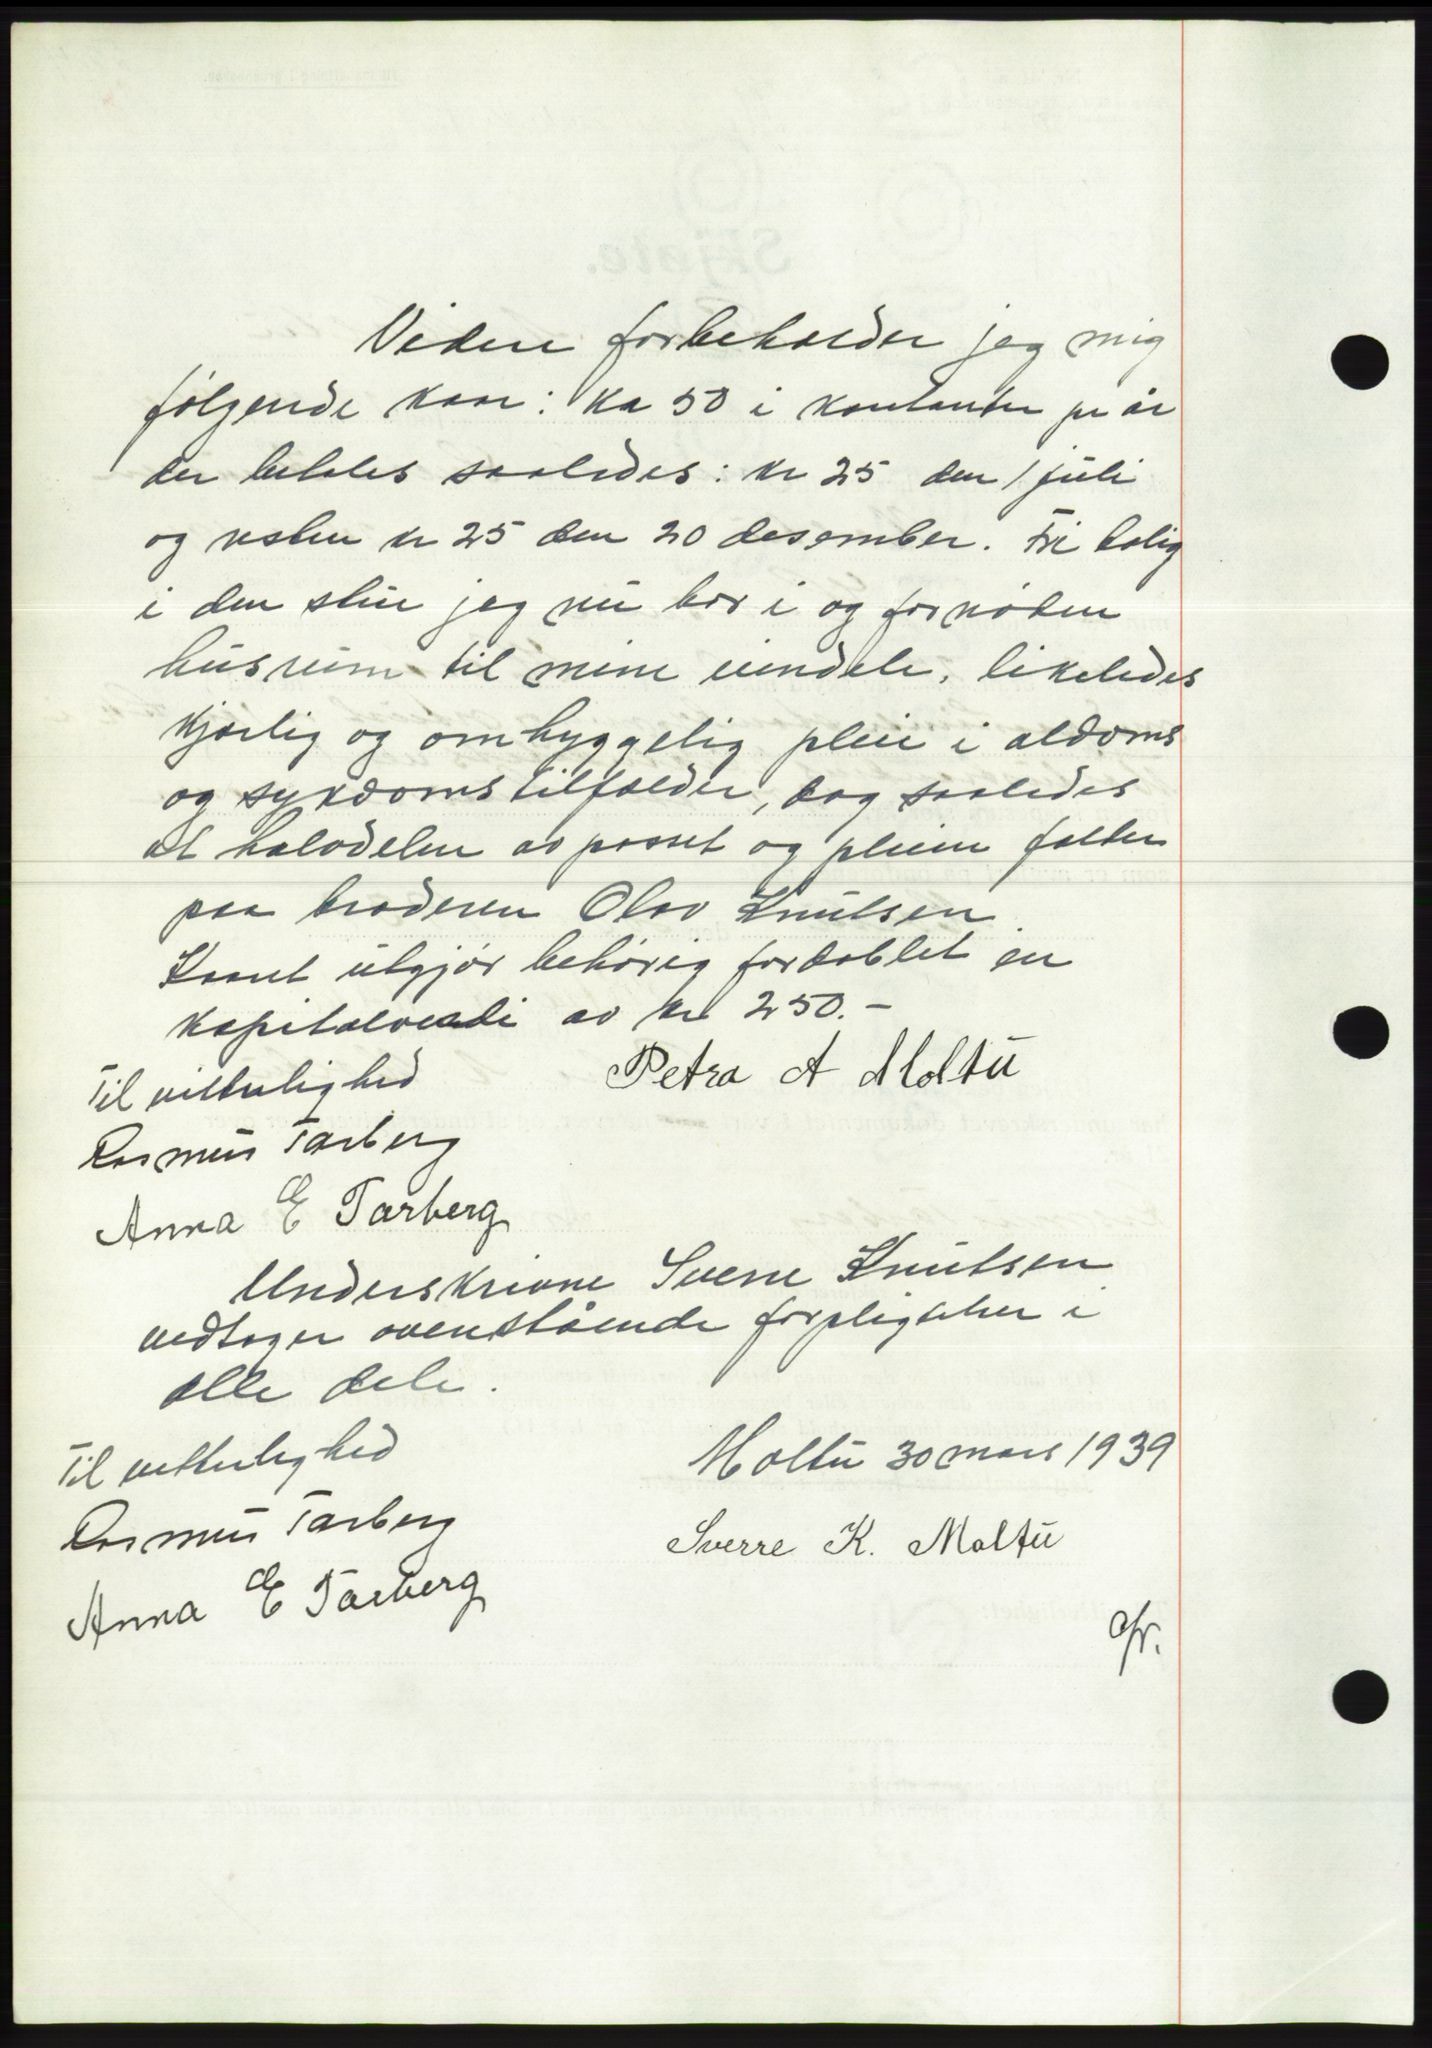 Videre forbeholder jeg mig
følgende kaar: kr 50 i kontanter pr år
der betales saaledes: kr 25 den 1 juli
og resten kr 25 den 20 desember. Fri bolig
i den stue jeg nu bor i og fornøden
husrum til mine eiendele, likeledes
kjærlig og omhyggelig pleie i aldoms
og sykdoms tilfælder, dog saaledes
at halvdelen av passet og pleien falder
paa broderen Olav Knutsen
Kaaret utgjør behørig fordoblet en
kapitalverdi av kr 250.-
Til vitterlighed
Petra A Moltu
Rasmus Tarberg
Anna E Tarberg
Underskrivne Sverre Knutsen
vedtager ovenstående forpligtelser i
alle dele.
Til vitterlighed
Moltu 30 mars 1939
Rasmus Tarberg
Sverre K. Moltu
Anna E Tarberg